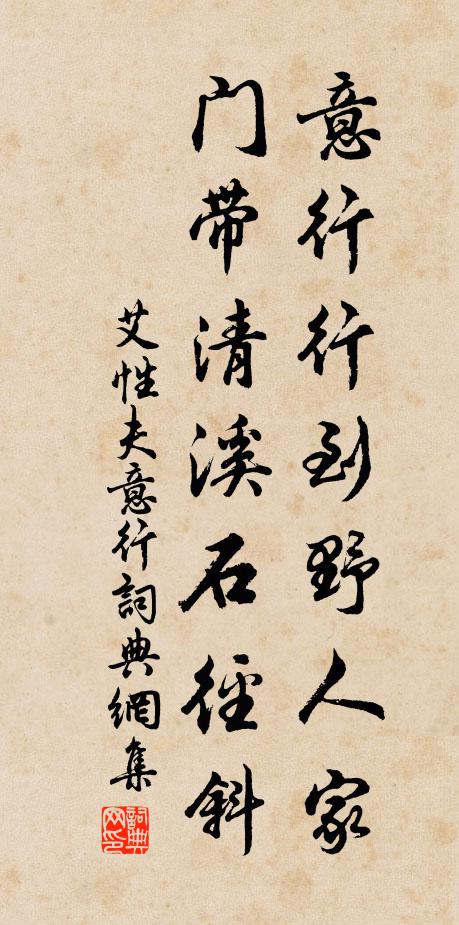 意行行到野人家
門帶清溪石徑斜
艾性夫意行詞典網集
詞典網印